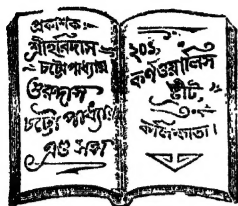 প্রকাশক:
শ্রীহরিদাস
চট্টোপাধ্যায়
গুরুদাস
চট্টোপাধ্যায়
এণ্ড সন্স
২০১,
কর্ণওয়ালিস
ষ্ট্রীট
কলিকাতা।